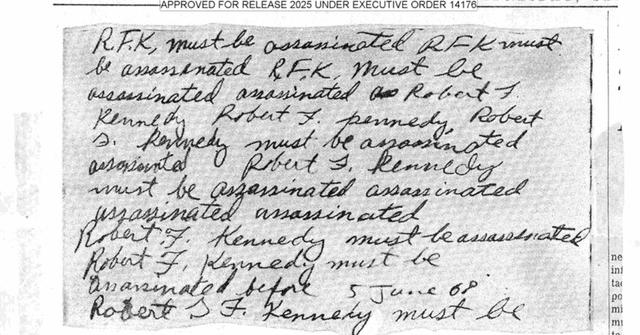 APPROVED FOR RELEASE 2025 UNDER EXECUTIVE ORDER 14176
R.F.K, must be assassinated R.F.K must
be assassinated R.F.K, must be
assassinated assassinated Robert F.
Kennedy Robert F. pennedy, Robert
F. Kennedy must be assassinated
assassinated Robert F. Kennedy
must be assassinated assassinated
assassinated assassinated
Robert F. Kennedy must be assassinated
Robert F. Kennedy must be
assassinated before 5 June 68
Robert F. Kennedy must be